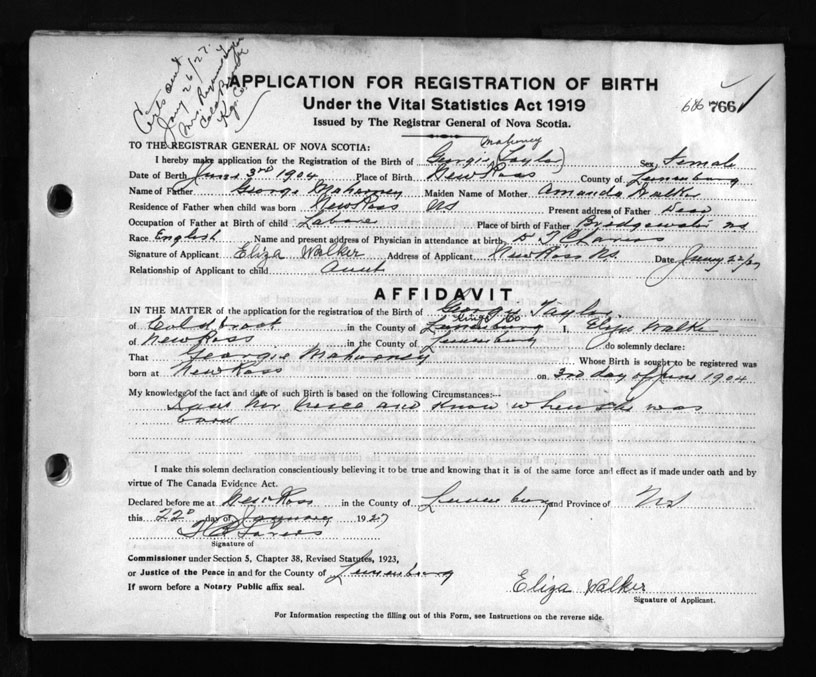 Certs sent
Jany 26/27.
Mrs
Coldbrook
Kgs Co.
APPLICATION FOR REGISTRATION OF BIRTH
Under the Vital Statistics Act 1919
686 766
Issued by The Registrar General of Nova Scotia.
TO THE REGISTRAR GENERAL OF NOVA SCOTIA:
Mahoney
I hereby make application for the Registration of the Birth of Georgie (Taylor) Sex Female
Date of Birth June 3rd 1904 Place of Birth New Ross County of Lunenburg
Name of Father George Mahoney Maiden Name of Mother Amanda Walker
Residence of Father when child was born New Ross NS Present address of Father Dead
Occupation of Father at Birth of child Labore Place of birth of Father Bridgewater NS
Race English Name and present address of Physician in attendance at birth Dr
Signature of Applicant Eliza Walker Address of Applicant New Ross NS Date Jany 22/27
Relationship of Applicant to child Aunt
AFFIDAVIT.
IN THE MATTER of the application for the registration of the Birth of Georgie Taylor
of Coldbrook in the County of Lunenburg Kings Co I, Eliza Walker
of New Ross in the County of Lunenburg do solemnly declare:
That Georgie Mahoney Whose Birth is sought to be registered was
born at New Ross on 3rd day of June 1904
My knowledge of the fact and date of such Birth is based on the following Circumstances:—
I am her and know when she was
born
I make this solemn declaration conscientiously believing it to be true and knowing that it is of the same force and effect as if made under oath and by
virtue of The Canada Evidence Act.
Declared before me at New Ross in the County of Lunenburg and Province of NS
this 22d day of January 1927
Signature of
Commissioner under Section 5, Chapter 38, Revised Statutes, 1923,
or Justice of the Peace in and for the County of Lunenburg
If sworn before a Notary Public affix seal.
Eliza Walker
Signature of Applicant.
For Information respecting the filling out of this Form, see Instructions on the reverse side.